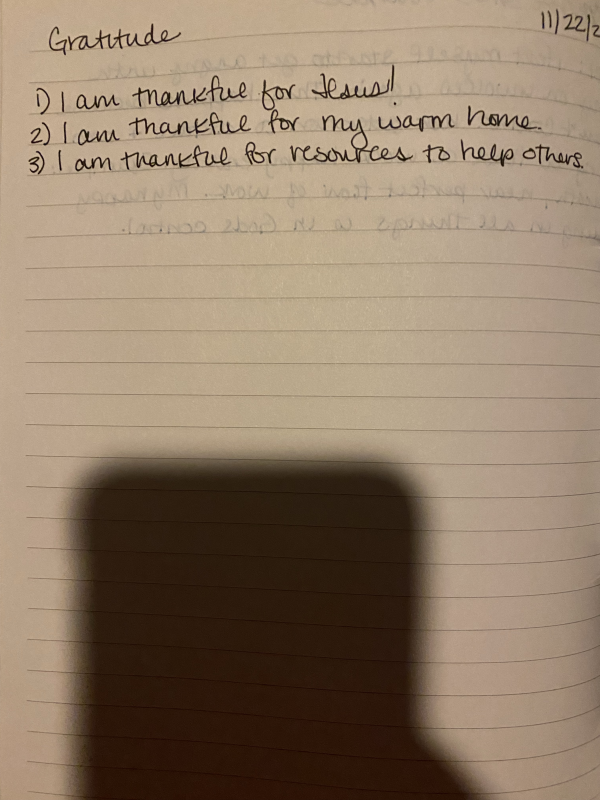 Gratitude
11/22/2
1) I am thankful for Jesus!
2) I am thankful for my warm home.
3) I am thankful for resources to help others.